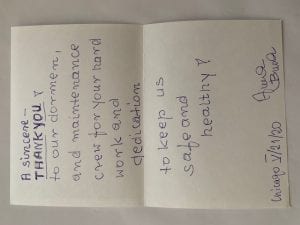 A sincere –
THANK YOU!
to our dormen,
and maintenance
crew for your hard
work and
dedication
to keep us
safe and
healthy!
Chicago V/21/20